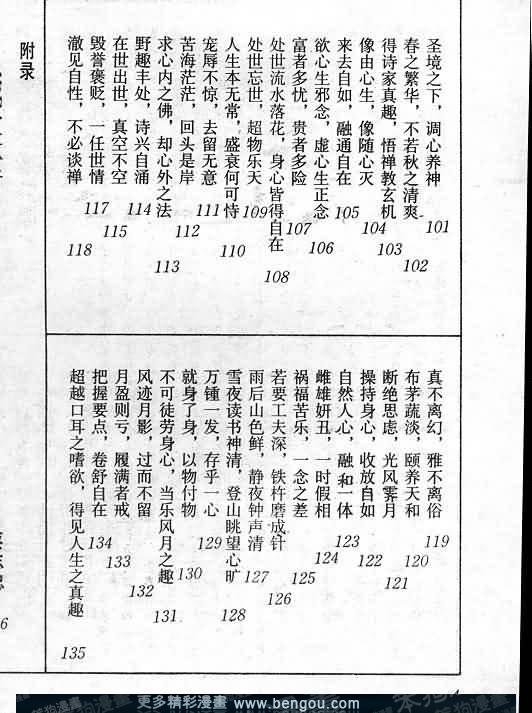 圣境之下，调心养神 101
春之繁华，不若秋之清爽 102
得诗家真趣，悟禅教玄机 103
像由心生，像随心灭 104
来去自如，融通自在 105
欲心生邪念，虚心生正念 106
富者多忧，贵者多险 107
处世流水落花，身心皆得自在 108
处世忘世，超物乐天 109
人生本无常，盛衰何可恃 110
宠辱不惊，去留无意 111
苦海茫茫，回头是岸 112
求心内之佛，却心外之法 113
野趣丰处，诗兴自涌 114
在世出世，真空不空 115
毁誉褒贬，一任世情 117
澈见自性，不必谈禅 118
附录
真不离幻，雅不离俗 119
布茅蔬淡，颐养天和 120
断绝思虑，光风霁月 121
操持身心，收放自如 122
自然人心，融和一体 123
雌雄妍丑，一时假相 124
祸福苦乐，一念之差 125
若要工夫深，铁杵磨成针 126
雨后山色鲜，静夜钟声清 127
雪夜读书神清，登山眺望心旷 128
万锺一发，存乎一心 129
就身了身，以物付物 130
不可徒劳身心，当乐风月之趣 131
风迹月影，过而不留 132
月盈则亏，履满者戒 133
把握要点，卷舒自在 134
超越口耳之嗜欲，得见人生之真趣 135
6
更多精彩漫畫 www.bengou.com